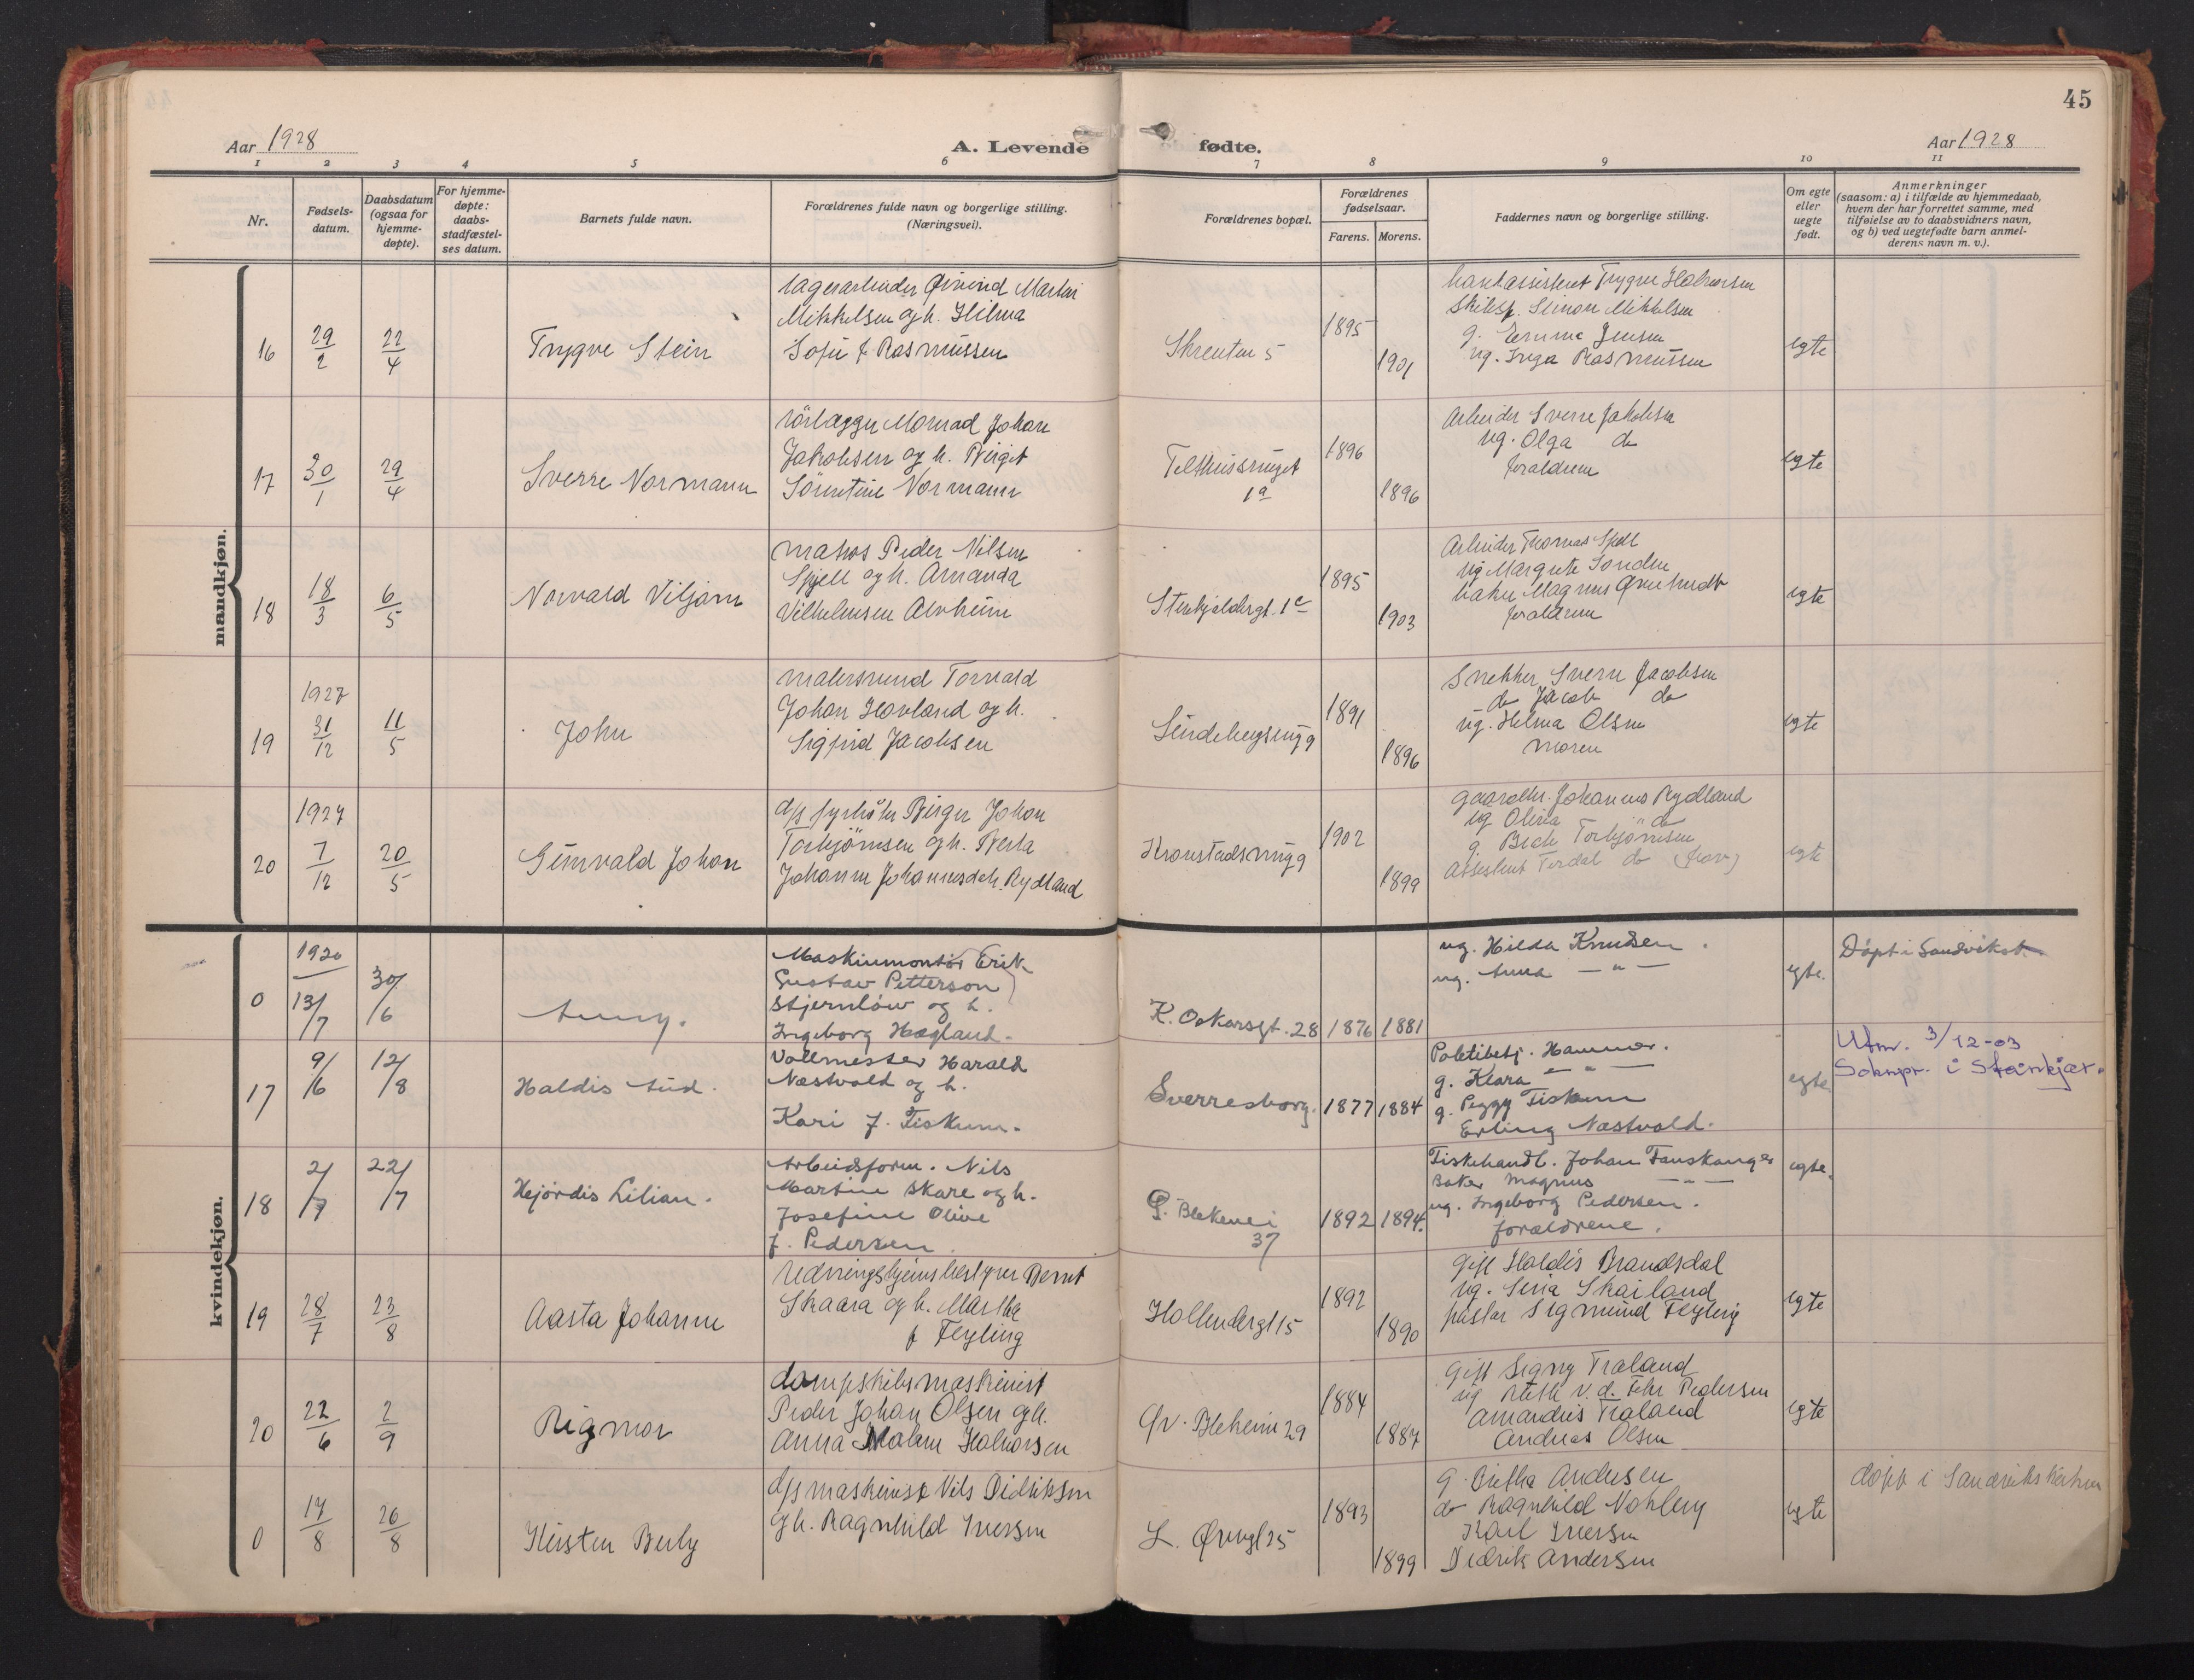 45
Aar 1928
A. Levende
fødte.
Aar 1928
1 2 3 4 5 6 7 8 9 10 11
Nr.
Fødsels-
datum.
Daabsdatum
(ogsaa for
hjemme-
døpte).
For hjemme-
døpte:
daabs-
stadfæstel-
ses datum.
Barnets fulde navn.
Forældrenes fulde navn og borgerlige stilling.
(Næringsvei).
Forældrenes bopæl.
Forældrenes
fødselsaar.
Farens. Morens.
Faddernes navn og borgerlige stilling.
Om egte
eller
uegte
født.
Anmerkninger
(saasom: a) i tilfælde av hjemmedaab,
hvem der har forrettet samme, med
tilføielse av to daabsvidners navn,
og b) ved uegtefødte barn anmel-
derens navn m. v.).
mandkjøn.
16
29/2
22/4
Trygve Stein
lagerarbeider Øivind Martin
Mikkelsen og h. Hilma
Sofie f. Rasmussen
Skreuten 5
1895
1901
Trygve Halvorsen
Simon Mikkelsen
g. Emma Jensen
ug. Inga Rasmussen
egte
17
30/1
29/4
Sverre Normann
rörlægger Monrad Johan
Jakobsen og h. Birgit
Sörentine Normann
1a
1896
1896
Arbeider Sverre Jakobsen
ug. Olga do
foraldrene
egte
18
18/3
6/5
Norvald Viljam
matros Peder Nilsen
Spjell og h. Amanda
Vilhelmsen Alvheim
1c
1895
1903
Arbeider Thomas Spjell
ug Margrete
baker Magnus
foraldrene
egte
19
1927
31/12
11/5
John
malersvend Torvald
Johan Hovland og h.
Sigfrid Jacobsen
1891
1896
Snekker Sverre Jacobsen
do Jacob do
ug. Helma Olsen
moren
egte
20
1927
7/12
20/5
Gunvald Johan
d/s fyrböter Birger Johan
Torbjörnsen og h. Berta
Johanne Johannesdtr. Rydland
Kronstadsmug 9
1902
1899
gaardbr. Johannes Rydland
ug Olina do
g. Torbjörnsen
do
egte
kvindekjøn.
0
1920
13/7
30/6
Anny.
Maskinmontör Erik
Gustav Petterson
Stjernlöw og h.
Ingeborg Hægland.
K. Oskarsgt. 28
1876
1881
ug. Hilda Knudsen.
ug. Anna — " —
egte.
Döpt i Sandviksk.
17
9/6
12/8
Haldis Aud.
Vollmester Harald
Næstvold og h.
Kari f. Fiskum.
Sverresborg.
1877
1884
Politibetj. Hammer.
g. Klara — " —
g. Peggy Fiskum
Erling Næstvold.
egte
Utm. 3/12-03
Soknpr. i Steinkjær.
18
2/7
22/7
Hejördis Lilian.
Arbeidsform. Nils
Martin Skare og h.
Josefine Olive
f. Pedersen.
37
1892
1894.
Fiskehandl. Johan Fauskanger
Baker Magnus — " —
ug. Ingeborg Pedersen.
foraldrene.
egte.
19
28/7
23/8
Aasta Johanne
redningshjemsbestyrer Bernt
Skaara og h. Martha
f Feyling
Hollendergt 15
1892
1890
gift Haldis Brandsdal
ug. Skailand
pastor Sigmund Feyling
egte
20
22/6
2/9
Rigmor
dampskibsmaskinist
Peder Johan Olsen og h.
Anna Malene Halvorsen
29
1884
1887
gift Signy Traland
ug v. d. Fehr Pedersen
Amandus Traland
Andreas Olsen
egte
0
17/8
26/8
Kirsten Berly
d/s maskinist Nils Didriksen
og h. Ragnhild Iversen
25
1893
1899
g. Andersen
do Ragnhild
Karl Iversen
Didrik Andersen
egte
döpt i Sandvikskirken